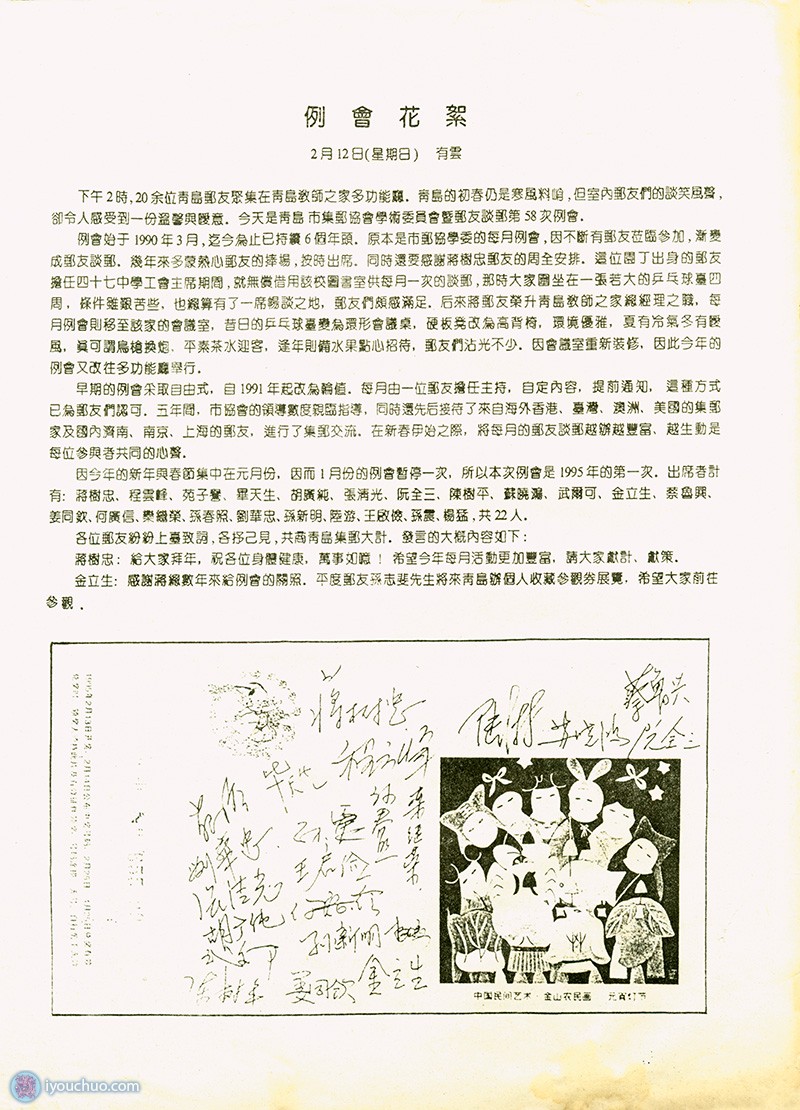 例會花絮
2月12日(星期日) 有雲
下午2時,20余位靑島郵友聚集在靑島敎師之家多功能廳。靑島的初春仍是寒風料峭,但室內郵友們的談笑風聲,
卻令人感受到一份溫馨與暖意。今天是靑島市集郵協會學術委員會暨郵友談郵第58次例會。
例會始于1990年3月,迄今為止已持續6個年頭。原本是市郵協學委的每月例會,因不斷有郵友莅臨參加,漸變
成郵友談郵。幾年來多蒙熱心郵友的捧場,按時出席。同時還要感謝蔣樹忠郵友的周全安排。這位園丁出身的郵友
擔任四十七中學工會主席期間,就無償借用該校圖書室供每月一次的談郵,那時大家圍坐在一張若大的乒乓球臺四
周,條件雖艱苦些,也總算有了一席暢談之地,郵友們頗感滿足。后來蔣郵友榮升靑島敎師之家總經理之職,每
月例會則移至該家的會議室,昔日的乒乓球臺變為環形會議桌,硬板凳改為高背椅,環境優雅,夏有冷氣冬有暖
風,眞可謂鳥槍換炮。平素茶水迎客,逢年則備水果點心招待,郵友們沾光不少。因會議室重新裝修,因此今年的
例會又改在多功能廳舉行。
早期的例會采取自由式,自1991年起改為輪值。每月由一位郵友擔任主持,自定內容,提前通知,這種方式
已為郵友們認可。五年間,市協會的領導數度親臨指導,同時還先后接待了來自海外香港、臺灣、澳洲、美國的集郵
家及國內濟南、南京、上海的郵友,進行了集郵交流。在新春伊始之際,將每月的郵友談郵越辦越豐富、越生動是
每位參與者共同的心聲。
因今年的新年與春節集中在元月份,因而1月份的例會暫停一次,所以本次例會是1995年的第一次。出席者計
有:蔣樹忠、程雲峰、苑子譽、畢天生、胡廣純、張淸光、阮全三、陳樹平、蘇曉鴻、武爾可、金立生、蔡魯興、
姜同欽、何廣信、欒繼榮、孫春照、劉華忠、孫新明、陸游、王啟儉、孫震、楊猛,共22人。
各位郵友紛紛上臺致詞,各抒己見,共商靑島集郵大計。發言的大概內容如下:
蔣樹忠:給大家拜年,祝各位身體健康,萬事如意!希望今年每月活動更加豐富,請大家獻計、獻策。
金立生:感謝蔣總數年來給例會的關照。平度郵友孫志斐先生將來靑島辦個人收藏參觀券展覽,希望大家前往
參觀.
蔣树忠
蔡鲁兴
陆游
苏晓鸿
阮全三
孙震
刘华忠
孙新明
金立生
姜同钦
中国民间艺术·金山农民画 元宵灯节
iyouchuo.com